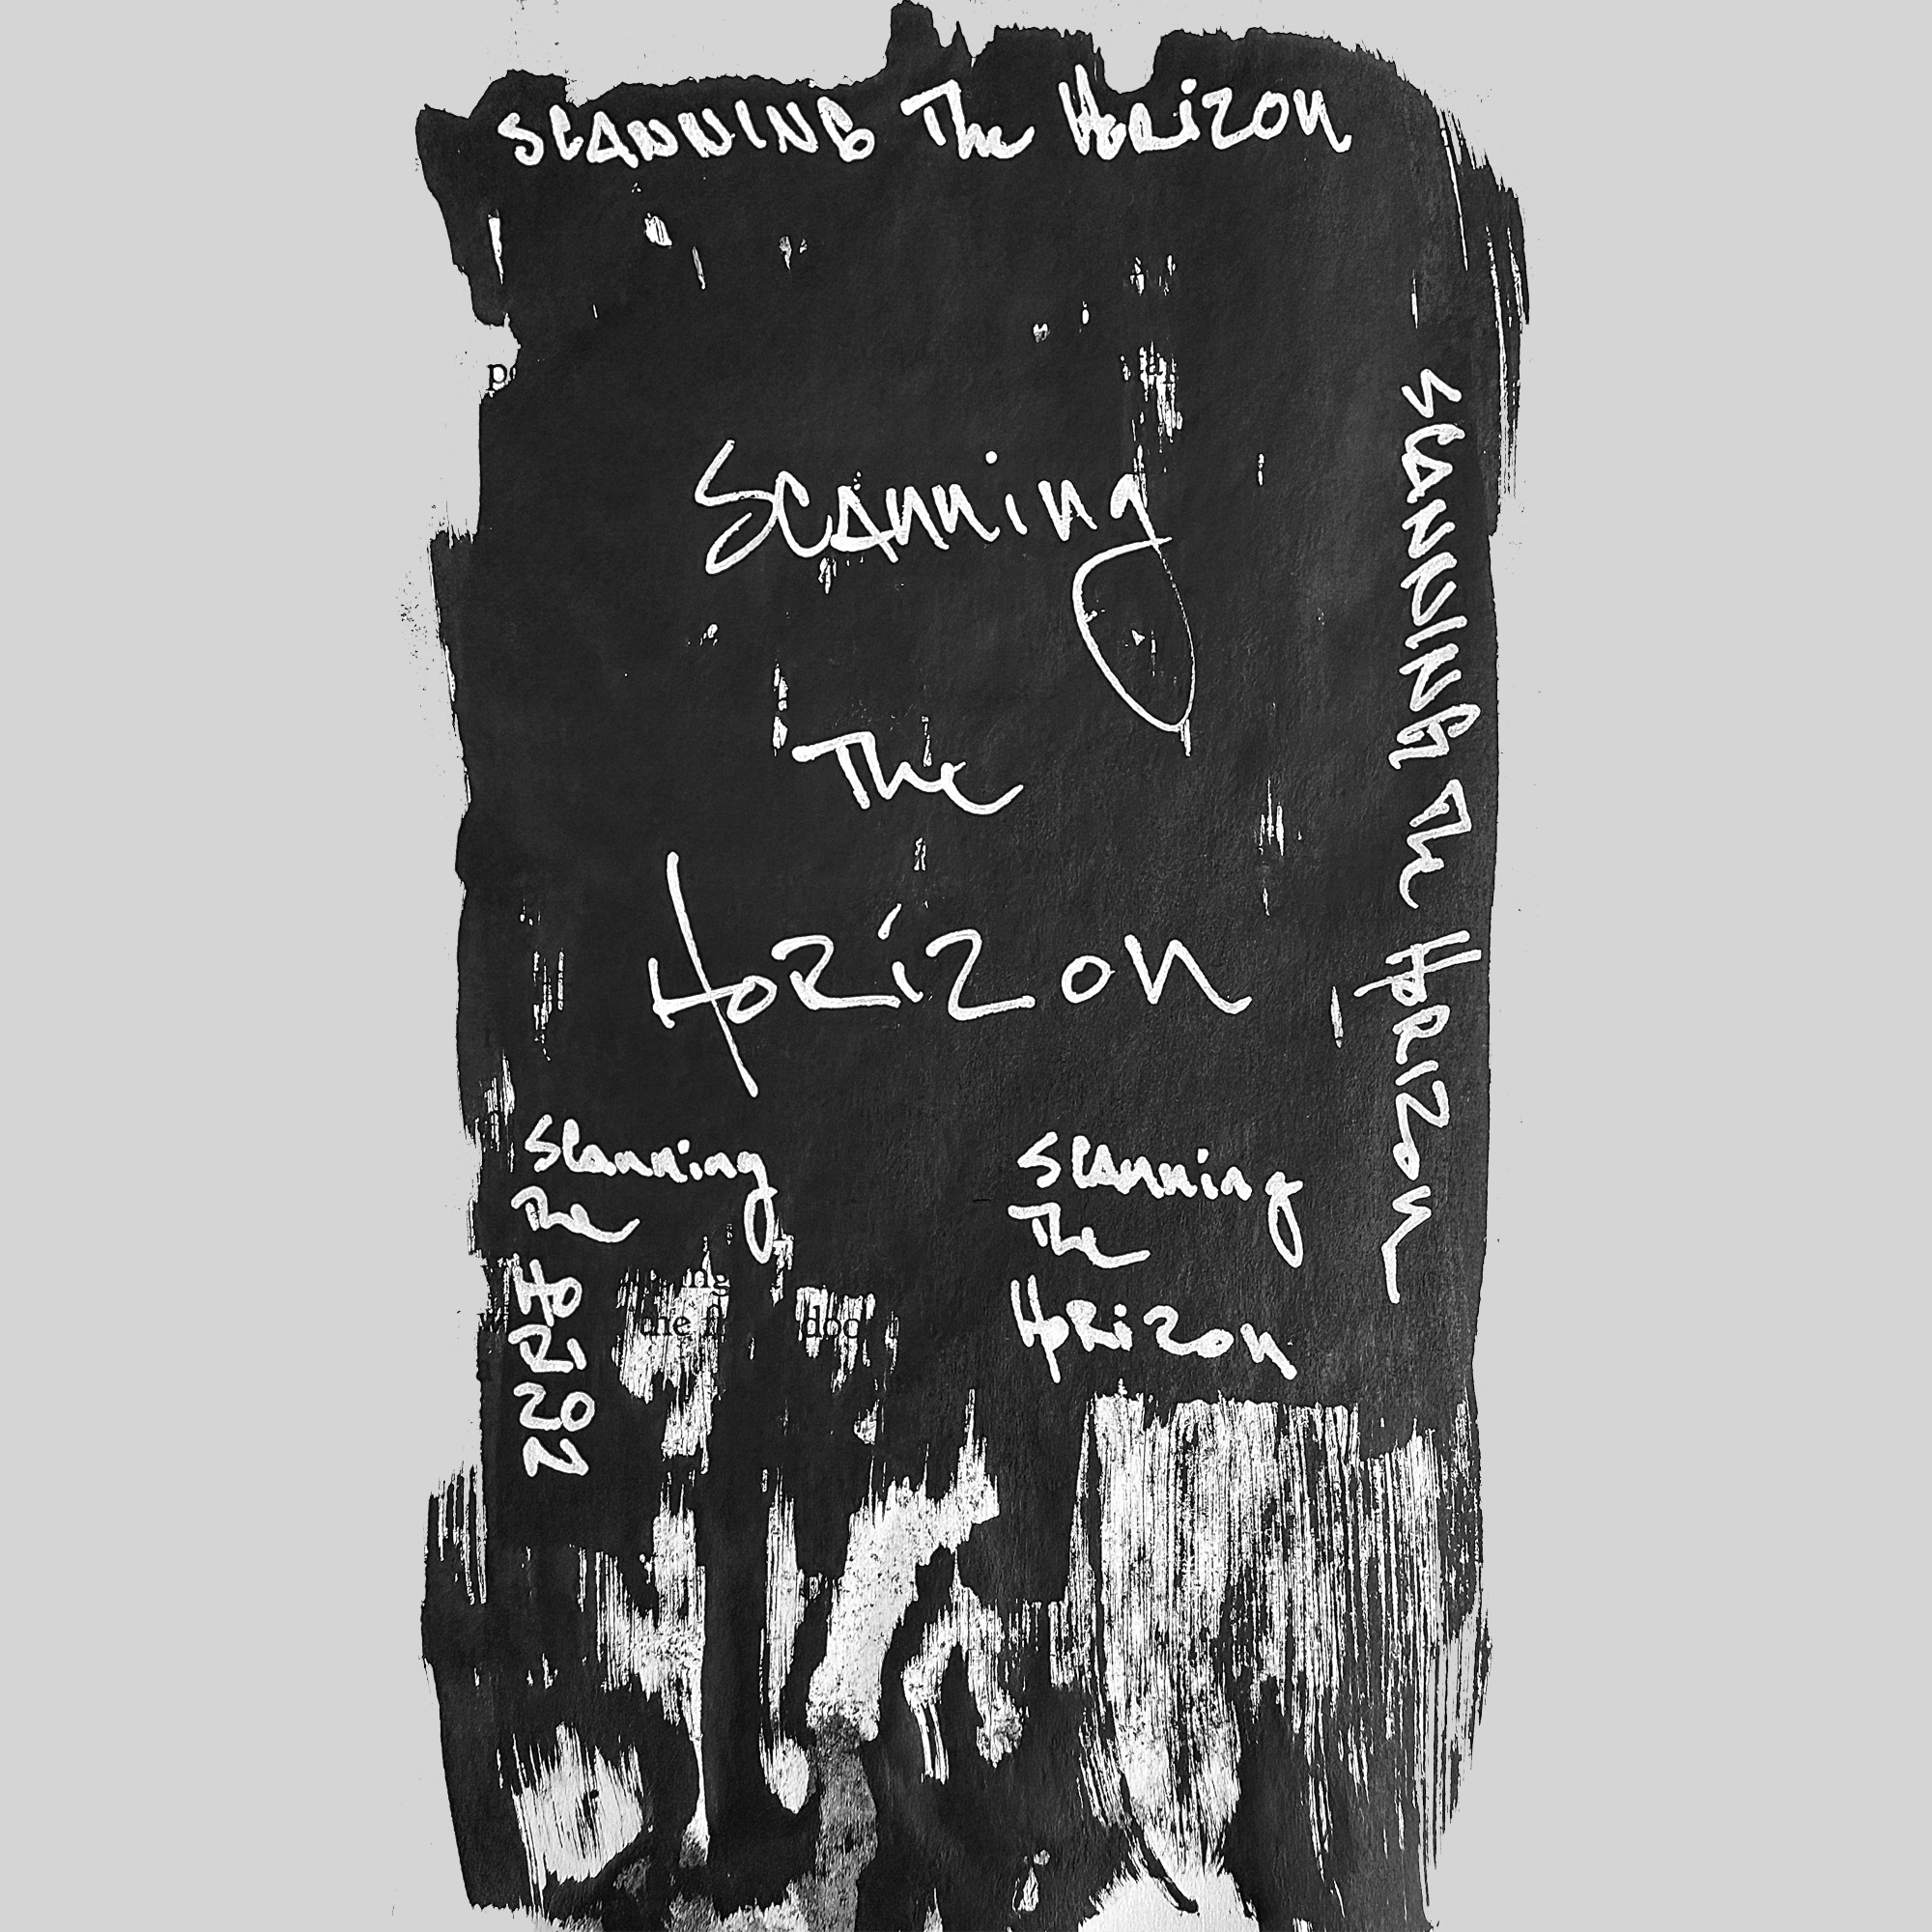 SCANNING The HORIZON
Scanning
The
HORIZON
SCANNING The HORIZON
Scanning
The
HORIZON
Scanning
The
HORIZON